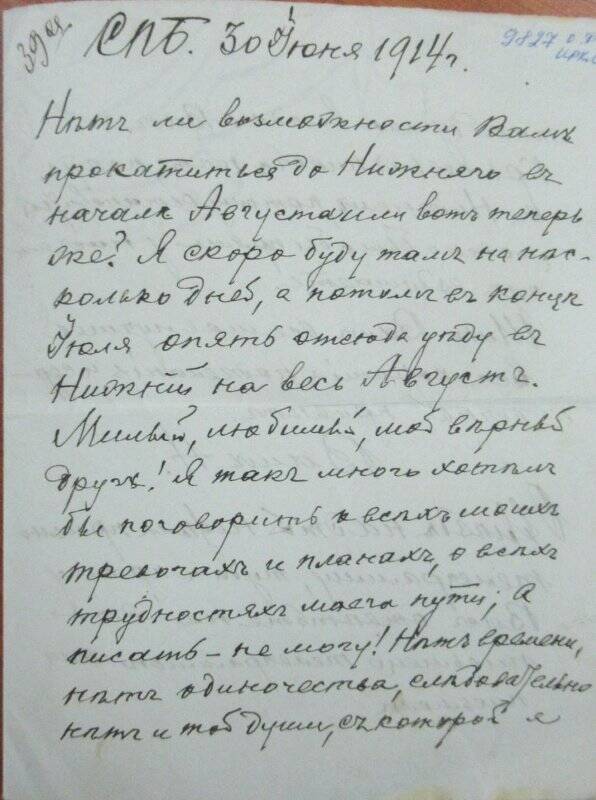 СПБ. 30 Iюня 1914 г.
9827
Нѣтъ ли возможности Вамъ
прокатиться до Нижняго въ
началѣ Августа или вотъ теперь
же? Я скоро буду тамъ на нѣс-
колько дней, а потомъ въ концѣ
Iюля опять отсюда уѣду въ
Нижнiй на весь Августъ.
Милый, любимый, мой вѣрный
другъ! Я такъ много хотѣлъ
бы поговорить о всѣхъ моихъ
тревогахъ и планахъ, о всѣхъ
трудностяхъ моего пути; А
писать – не могу! Нѣтъ времени,
нѣтъ одиночества, слѣдовательно
нѣтъ и той души, съ которой я